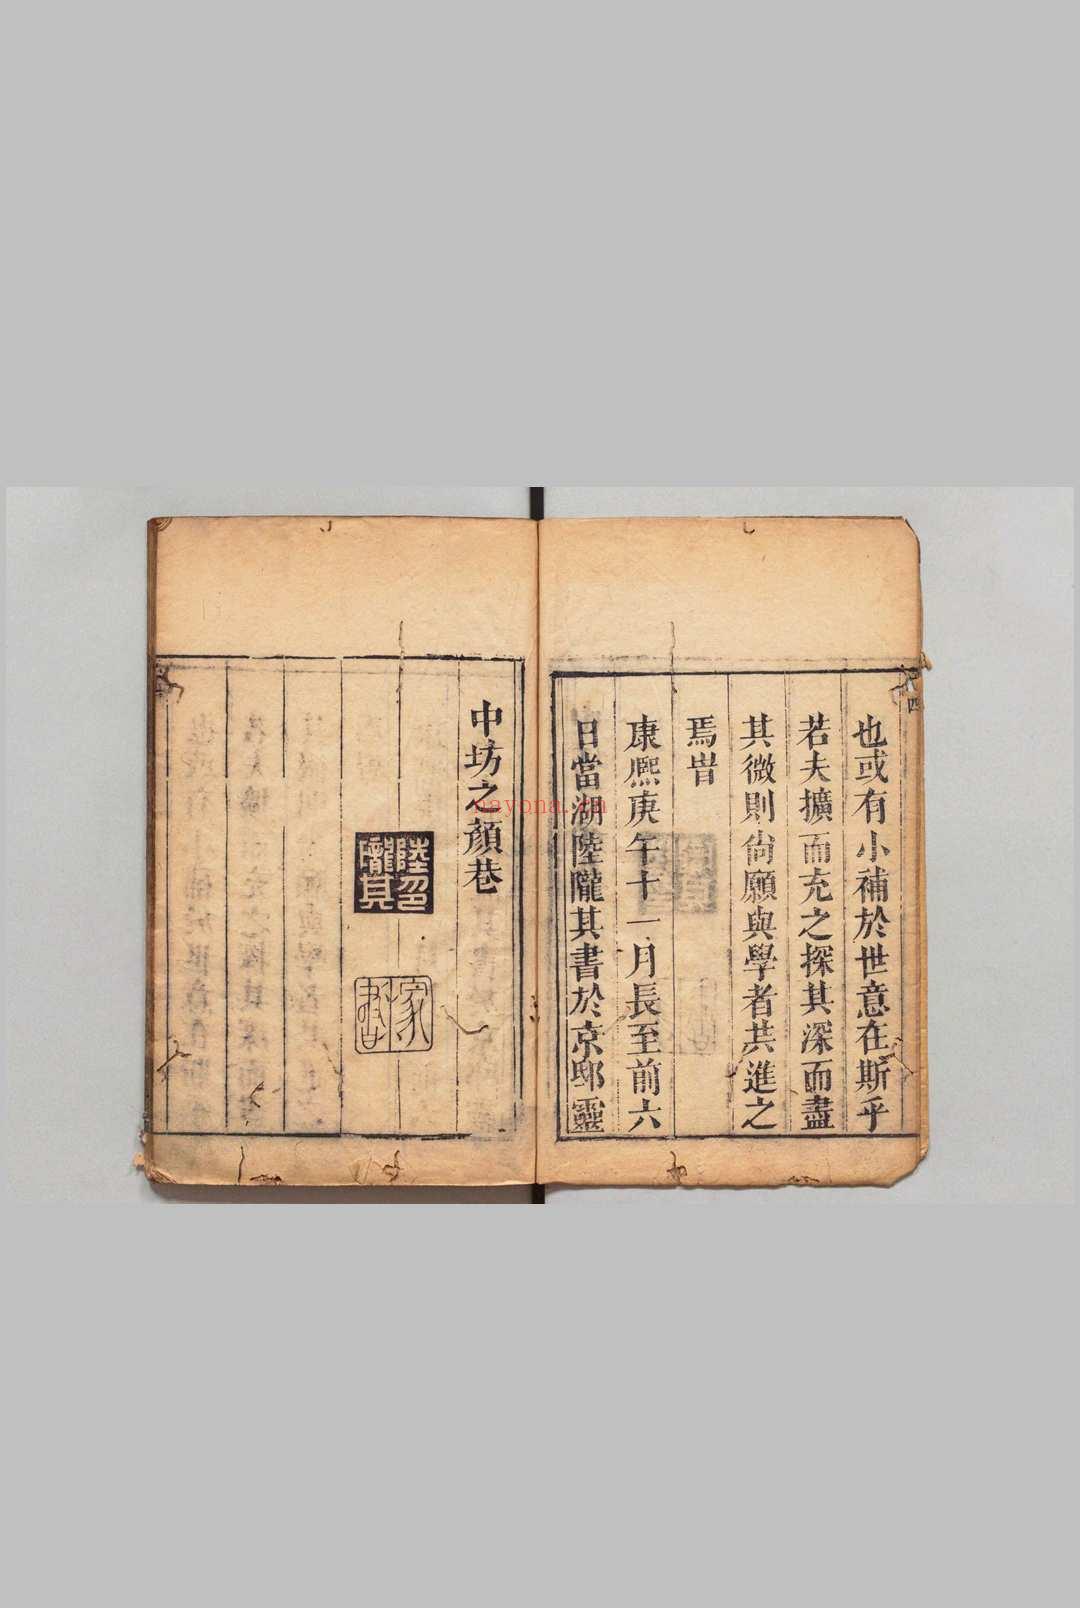 也或有小補於世意在斯乎
若夫擴而充之探其深而盡
其微則尙願與學者共進之
焉旹
康熈庚午十一月長至前六
日當湖陸隴其書於京邸靈
中坊之顏巷
陸隴其印
家書
四
nayona.cn